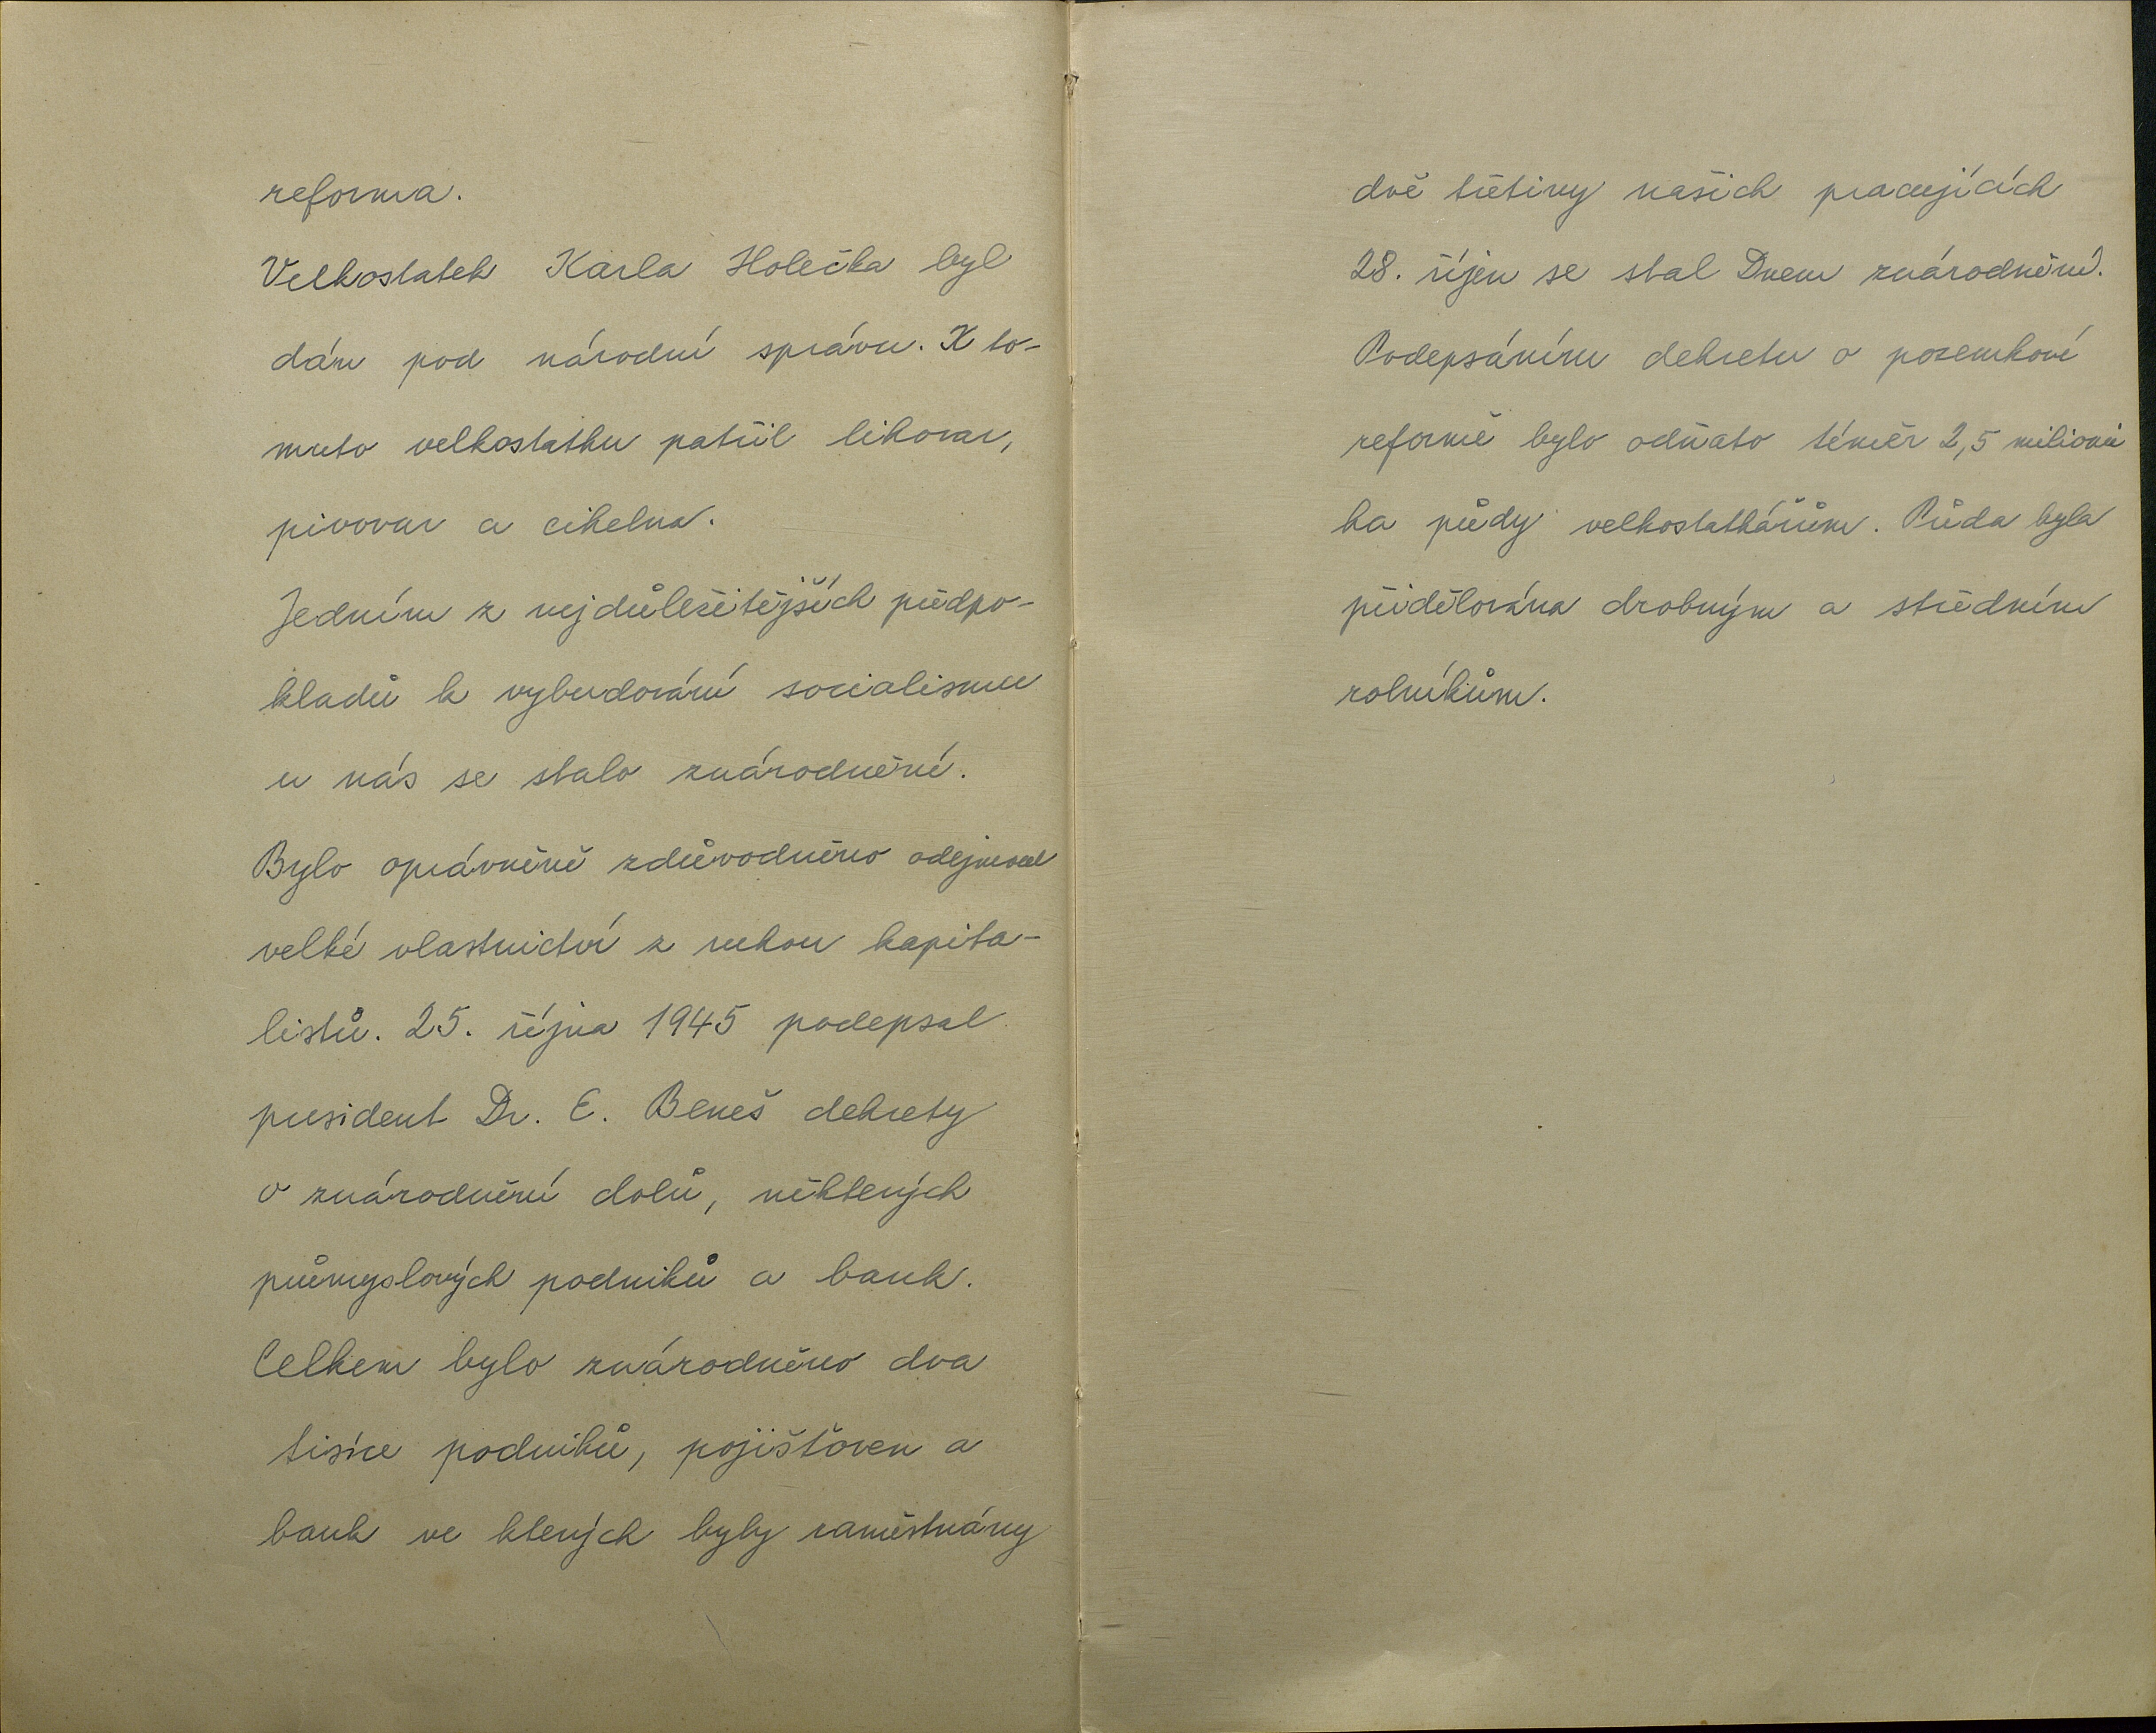 reforma.
Velkostatek Karla Holečka byl
dán pod národní správu. K to-
muto velkostatku patřil lihovar,
pivovar a cihelna.
Jedním z nejdůležitějších předpo-
kladů k vybudování socialismu
u nás se stalo znárodnění.
Bylo oprávněně zdůvodněno odejmout
velké vlastnictví z rukou kapita-
listů. 25. října 1945 podepsal
president Dr. E. Beneš dekrety
o znárodnění dolů, některých
průmyslových podniků a bank.
Celkem bylo znárodněno dva
tisíce podniků, pojišťoven a
bank ve kterých byly zaměstnány
dvě třetiny našich pracujících
28. říjen se stal Dnem znárodnění.
Podepsáním dekretu o pozemkové
reformě bylo odňato téměř 2,5 milionů
ha půdy velkostatkářům. Půda byla
přidělována drobným a středním
rolníkům.